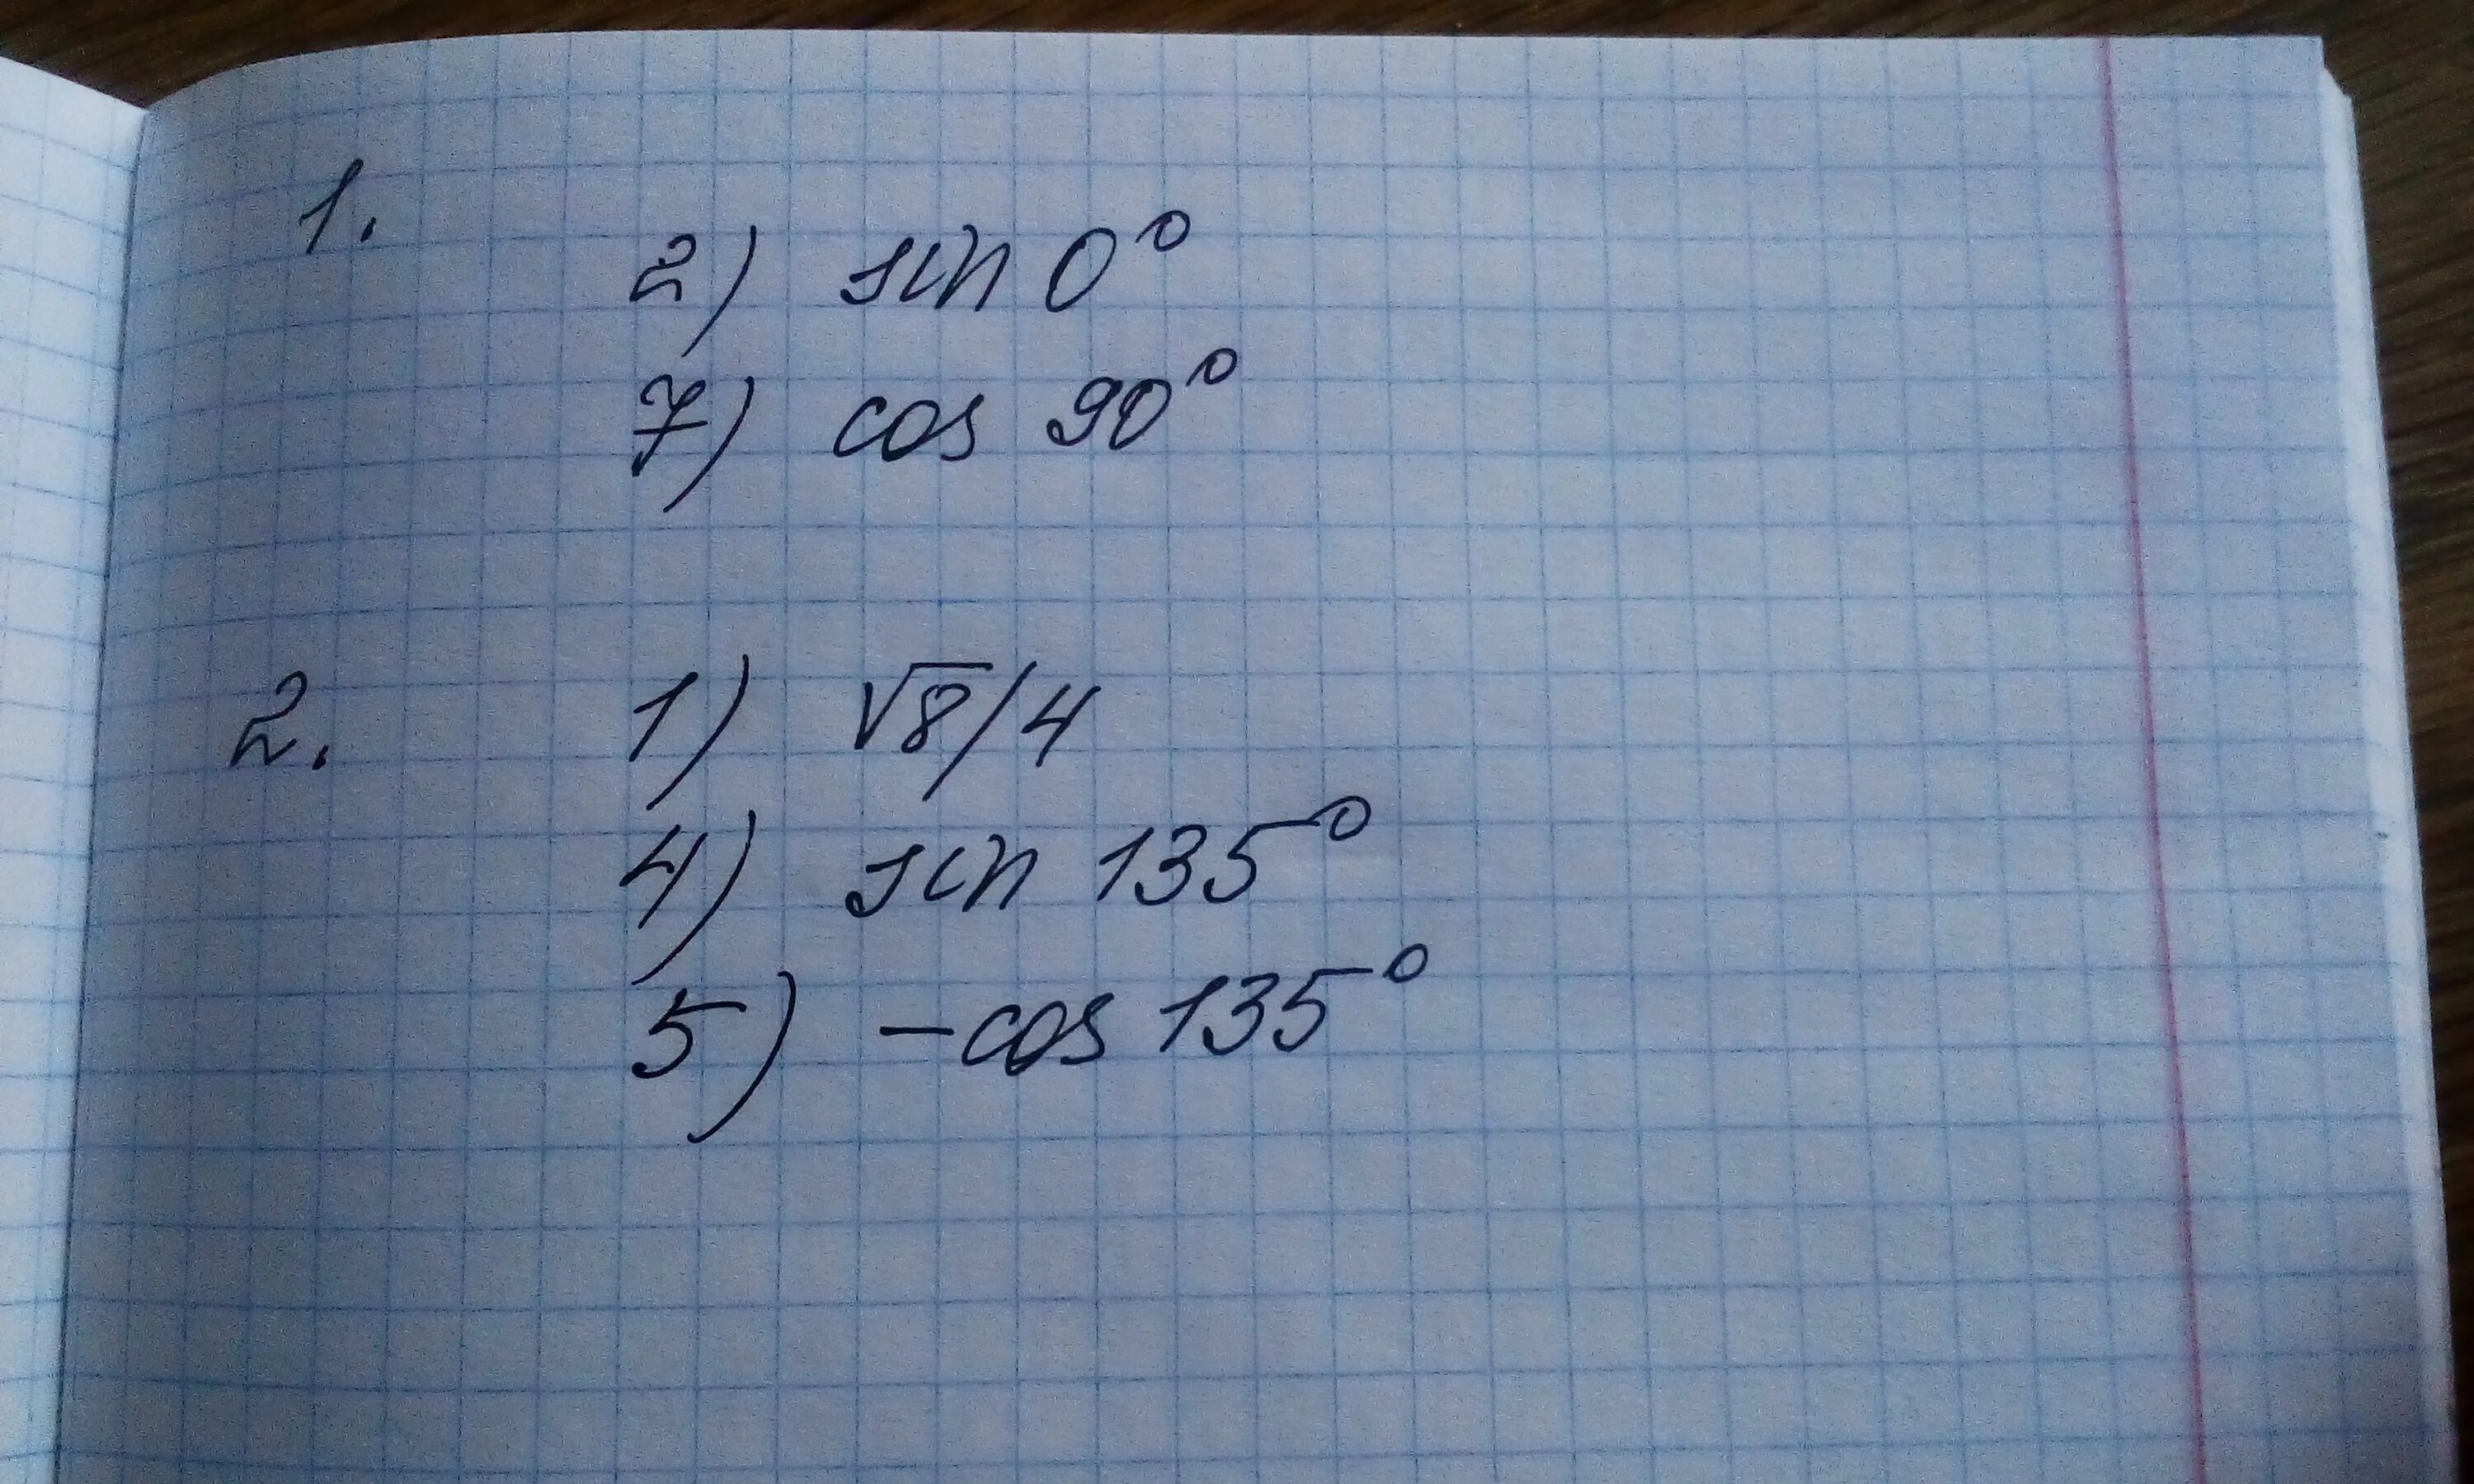 1.
2) sin 0°
7) cos 90°
2. 1) √8/4
4) sin 135°
5) -cos 135°